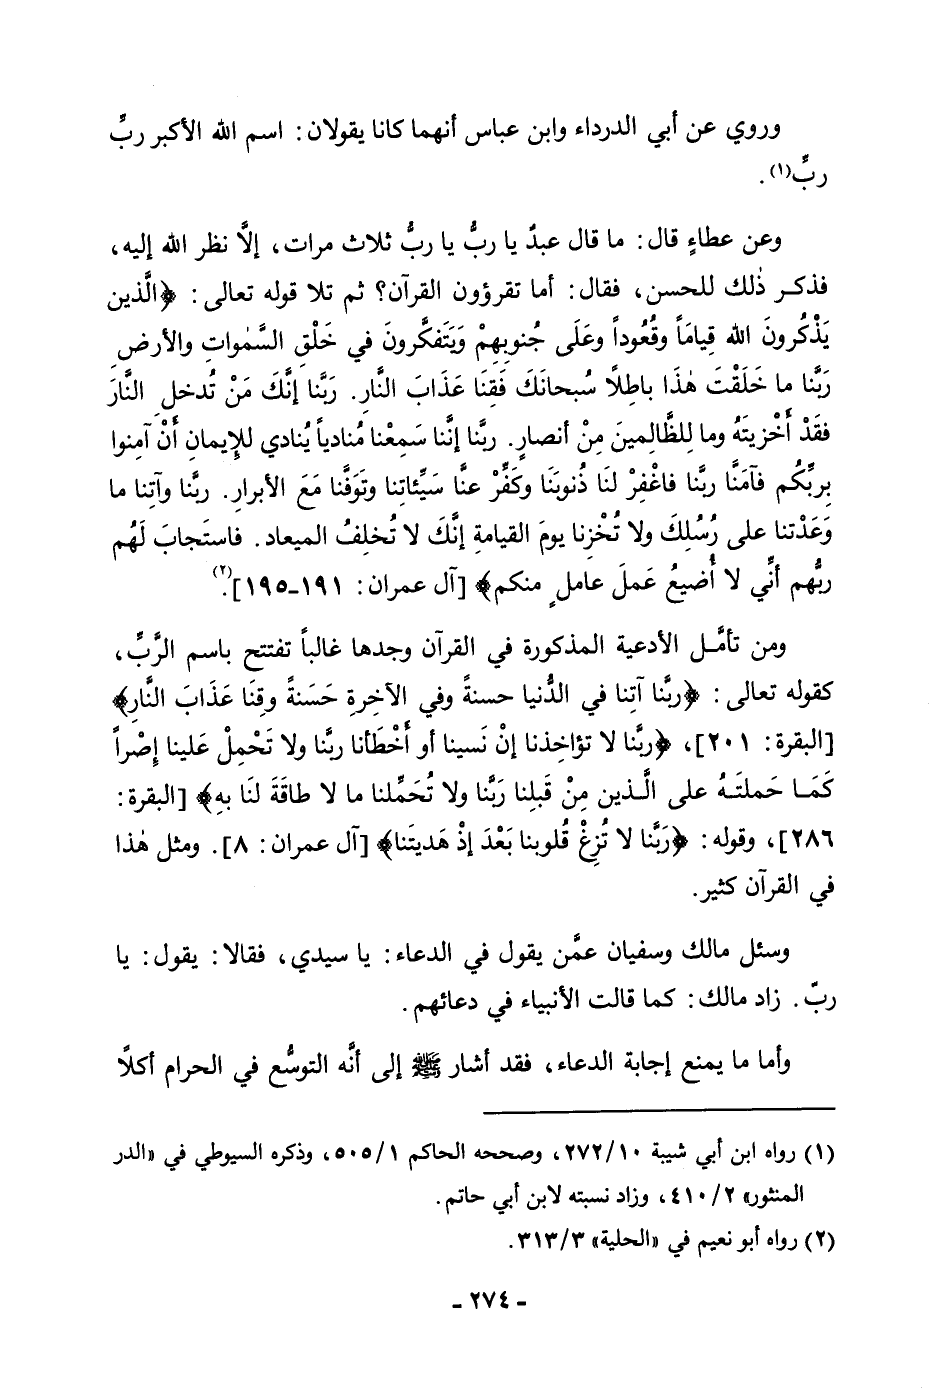 وروي عن أبي الدرداء وابن عباس أنهما كانا يقولان: اسم الله الأكبر ربِّ
ربِّ(١).
وعن عطاءٍ قال: ما قال عبدٌ يا ربُّ يا ربُّ ثلاث مرات، إلاَّ نظر الله إليه،
فذكر ذٰلك للحسن، فقال: أما تقرؤون القرآن؟ ثم تلا قوله تعالى: ﴿الَّذين
يَذْكُرونَ الله قِياماً وقُعُوداً وعَلَى جُنوبِهِمْ وَيَتَفكَّرونَ في خَلْقِ السَّمٰواتِ والأرضِ
رَبَّنا ما خَلَقْتَ هٰذَا باطِلاً سُبحانَكَ فَقِنَا عَذَابَ النَّارِ. رَبَّنا إنَّكَ مَنْ تُدخلِ النَّارَ
فقَدْ أَخْزيتَهُ وما لِلظَّالِمينَ مِنْ أنصارٍ. ربَّنا إنَّنا سَمِعْنا مُنادياً يُنادي للإيمانِ أَنْ آمِنوا
بِربِّكُم فآمَنَّا ربَّنا فاغْفِرْ لنَا ذُنوبَنَا وكَفِّرْ عنَّا سَيِّئاتِنا وتَوَفَّنا مَعَ الأبرارِ. ربَّنا وآتِنا ما
وَعَدْتنا على رُسُلِكَ ولا تُخْزِنا يومَ القيامةِ إنَّكَ لا تُخلِفُ الميعاد. فاستَجابَ لَهُم
ربُّهم أنِّي لا أُضيعُ عَملَ عاملٍ منكم﴾ [آل عمران: ١٩١-١٩٥](٢).
ومن تأمَّل الأدعية المذكورة في القرآن وجدها غالباً تفتتح باسم الرَّبِّ،
كقوله تعالى: ﴿ربَّنا آتِنا في الدُّنيا حسنةً وفي الآخِرةِ حَسَنةً وقِنَا عَذَابَ النَّارِ﴾
[البقرة: ٢٠١]، ﴿ربَّنا لا تؤاخِذنا إنْ نَسينا أو أَخْطَأنا ربَّنا ولا تَحْمِلْ عَلينا إصْراً
كَمَا حَملتَهُ على الَّذين مِنْ قَبلِنا رَبَّنا ولا تُحَمِّلنا ما لا طاقَةَ لنَا بهِ﴾ [البقرة:
٢٨٦]، وقوله: ﴿رَبَّنا لا تُزِغْ قُلوبنا بَعْدَ إذْ هَديتَنا﴾ [آل عمران: ٨]. ومثل هٰذا
في القرآن كثير.
وسئل مالك وسفيان عمَّن يقول في الدعاء: يا سيدي، فقالا: يقول: يا
ربّ. زاد مالك: كما قالت الأنبياء في دعائهم.
وأما ما يمنع إجابة الدعاء، فقد أشار ﷺ إلى أنَّه التوسُّع في الحرام أكلاً
(١) رواه ابن أبي شيبة ٢٧٢/١٠، وصححه الحاكم ٥٠٥/١، وذكره السيوطي في «الدر
المنثور» ٤١٠/٢، وزاد نسبته لابن أبي حاتم.
(٢) رواه أبو نعيم في «الحلية» ٣١٣/٣.
- ٢٧٤ -